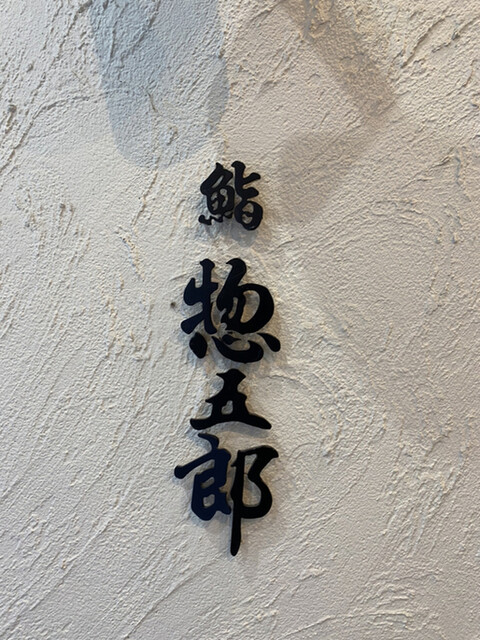 鮨 惣五郎